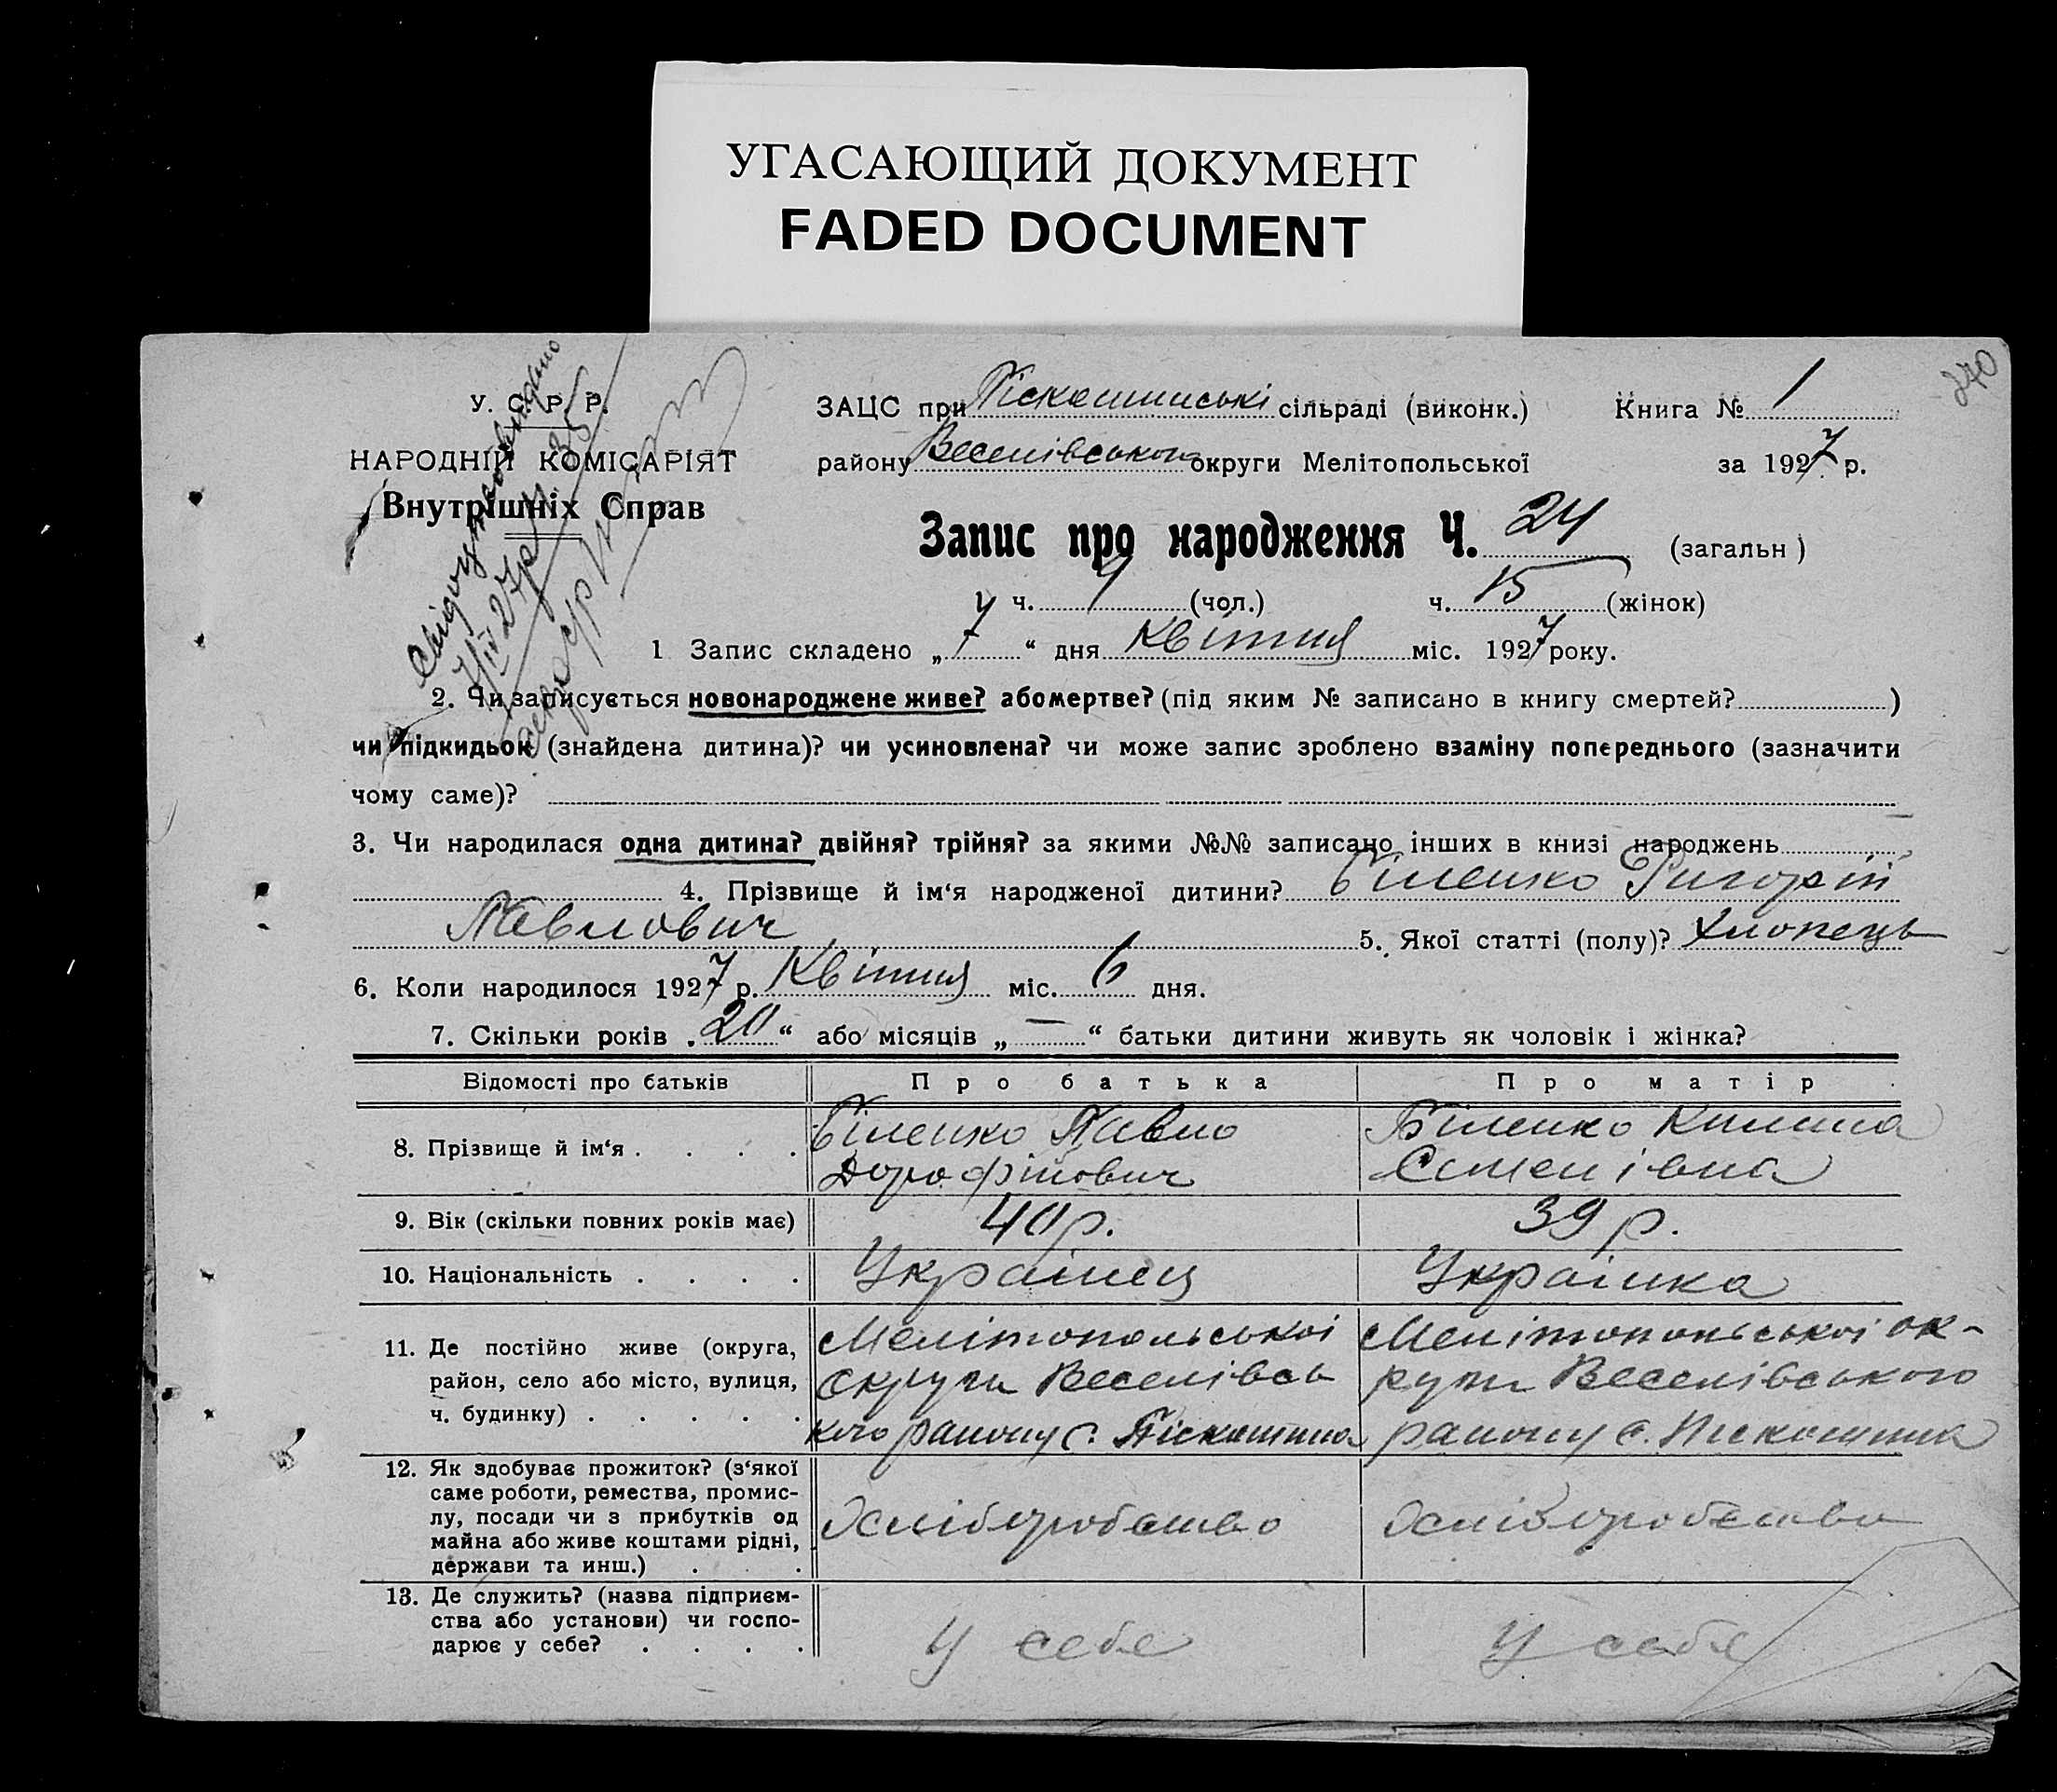 УГАСАЮЩИЙ ДОКУМЕНТ
FADED DOCUMENT
240
У. С. Р. Р.
НАРОДНІЙ КОМІСАРІЯТ
Внутрішніх Справ
ЗАЦС при Піскошинські сільраді (виконк.) Книга № 1
району Веселівського округи Мелітопольської за 1927 р.
Запис про народження Ч. 24 (загальн)
у ч. 9 (чол.) ч. 15 (жінок)
1 Запис складено „ 7 “ дня Квітня міс. 1927 року.
2. Чи записується новонароджене живе? або мертве? (під яким № записано в книгу смертей? )
чи підкидьок (знайдена дитина)? чи усиновлена? чи може запис зроблено взаміну попереднього (зазначити
чому саме)?
3. Чи народилася одна дитина? двійня? трійня? за якими №№ записано інших в книзі народжень
4. Прізвище й ім‘я народженої дитини? Біленко Григорій
Павлович 5. Якої статті (полу)? Хлопець
6. Коли народилося 1927 р. Квітня міс. 6 дня.
7. Скільки років „ 20 “ або місяців „ — “ батьки дитини живуть як чоловік і жінка?
Відомості про батьків Про батька Про матір
8. Прізвище й ім‘я . . . . Біленко Павло Біленко Килина
Дорофійович Семенівна
9. Вік (скільки повних років має) 40 р. 39 р.
10. Національність . . . . Українец Українка
11. Де постійно живе (округа, Мелітопольської Мелітопольської ок-
район, село або місто, вулиця, Округи Веселівсь руги Веселівського
ч. будинку) . . . . . кого району с. Піскошино району с. Піскошино
12. Як здобуває прожиток? (з‘якої
саме роботи, ремества, промис-
лу, посади чи з прибутків од Хліборобство Хліборобство
майна або живе коштами рідні,
держави та инш.) . . .
13. Де служить? (назва підприєм-
ства або установи) чи госпо-
дарює у себе? . . . . У себе У себе